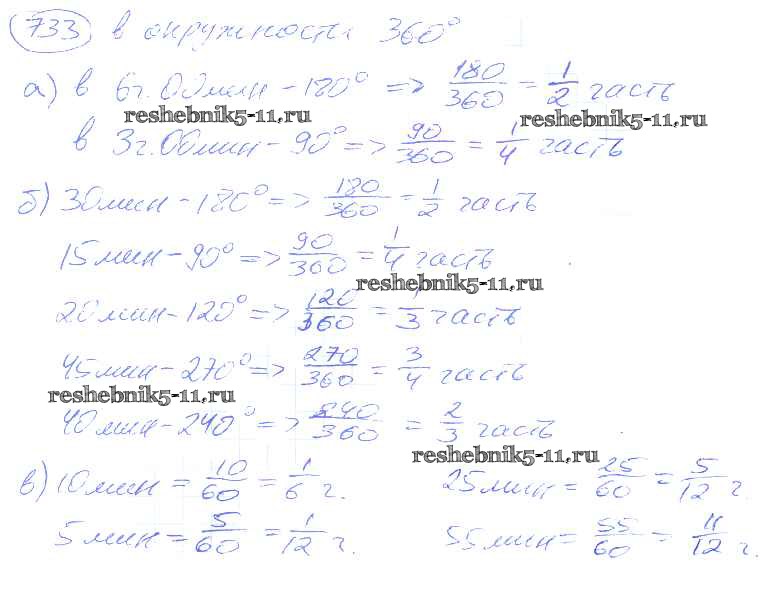 733 в окружности 360°
а) в 6г.00мин - 180° => 180/360 = 1/2 часть
reshebnik5-11.ru reshebnik5-11.ru
в 3г.00мин - 90° => 90/360 = 1/4 часть
б) 30мин - 180° => 180/360 = 1/2 часть
15мин - 90° => 90/360 = 1/4 часть
reshebnik5-11.ru
20мин - 120° => 120/360 = 1/3 часть
45мин - 270° => 270/360 = 3/4 часть
reshebnik5-11.ru
40мин - 240° => 240/360 = 2/3 часть
reshebnik5-11.ru
в) 10мин = 10/60 = 1/6 г. 25мин = 25/60 = 5/12 г.
5мин = 5/60 = 1/12 г. 55мин = 55/60 = 11/12 г.